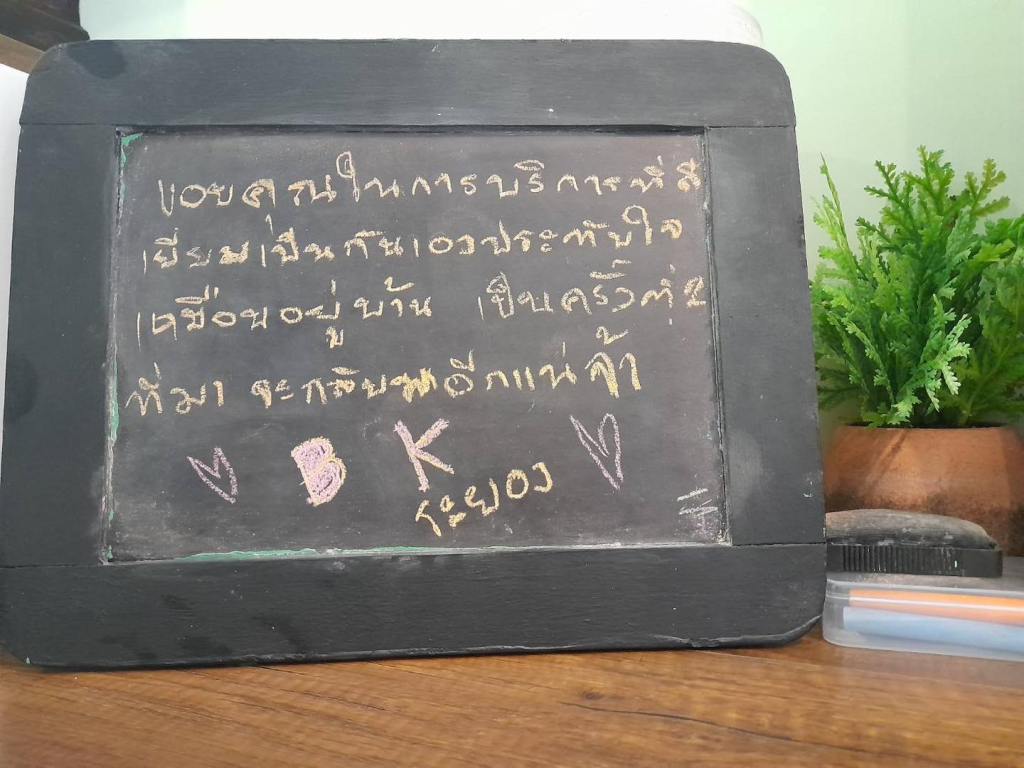 ขอบคุณในการบริการที่ดี
เยี่ยมเป็นกันเองประทับใจ
เหมือนอยู่บ้าน เป็นครั้งที่2
ที่มา จะกลับมาอีกแน่จ้า
B K
ระยอง